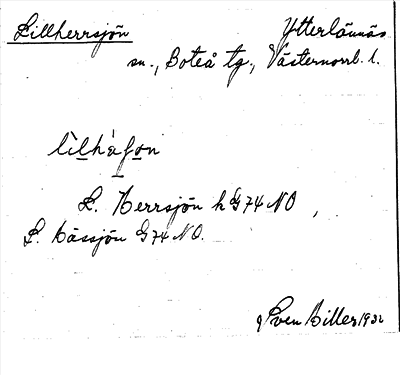 Lillherrsjön Ytterlännäs
sn., Boteå tg., Västernorrl. l.
lìlhàʃon
L. Herrsjön k G74 NO,
L. Hässjön G74 NO.
Sven Biller 1932